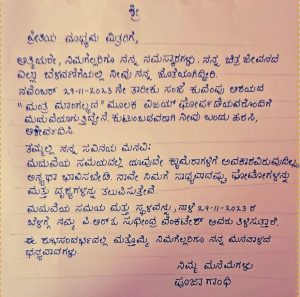 ಶ್ರೀ
ಪ್ರೀತಿಯ ಮಾಧ್ಯಮ ಮಿತ್ರರಿಗೆ,
ಆತ್ಮೀಯರೇ, ನಿಮಗೆಲ್ಲರಿಗೂ ನನ್ನ ನಮಸ್ಕಾರಗಳು. ನನ್ನ ಚಿತ್ರ ಜೀವನದ
ಎಲ್ಲಾ ಬೆಳವಣಿಗೆಯಲ್ಲಿ ನೀವು ನನ್ನ ಜೊತೆಯಾಗಿದ್ದೀರಿ.
ನವೆಂಬರ್ 29-11-2023 ನೇ ತಾರೀಕು ಸಂಜೆ ಕುವೆಂಪು ಆಶಯದ
"ಮಂತ್ರ ಮಾಂಗಲ್ಯದ" ಮೂಲಕ ವಿಜಯ್ ಘೋರ್ಪಡೆಯವರೊಂದಿಗೆ
ಮದುವೆಯಾಗುತ್ತಿದ್ದೇನೆ. ಕುಟುಂಬದವರಾಗಿ ನೀವು ಬಂದು ಹರಸಿ,
ಆಶೀರ್ವದಿಸಿ.
ತಮ್ಮಲ್ಲಿ ನನ್ನ ಸವಿನಯ ಮನವಿ:
ಮದುವೆಯ ಸಮಯದಲ್ಲಿ ಯಾವುದೇ ಕ್ಯಾಮೆರಾಗಳಿಗೆ ಅವಕಾಶವಿರುವುದಿಲ್ಲ,
ಅನ್ಯಥಾ ಭಾವಿಸಬೇಡಿ. ನಾವೇ ನಿಮಗೆ ಸಾಧ್ಯವಾದಷ್ಟು ಫೋಟೋಗಳನ್ನು
ಮತ್ತು ದೃಶ್ಯಗಳನ್ನು ತಲುಪಿಸುತ್ತೇವೆ.
ಮದುವೆಯ ಸಮಯ ಮತ್ತು ಸ್ಥಳವನ್ನು, ನಾಳೆ 29-11-2023 ರ
ಬೆಳಿಗ್ಗೆ ನಮ್ಮ ಪಿ.ಆರ್.ಓ ಸುಧೀಂದ್ರ ವೆಂಕಟೇಶ್ ಅವರು ತಿಳಿಸುತ್ತಾರೆ.
ಈ ಶುಭಸಂದರ್ಭದಲ್ಲಿ ಮತ್ತೊಮ್ಮೆ ನಿಮಗೆಲ್ಲರಿಗೂ ನನ್ನ ಮನದಾಳದ
ಧನ್ಯವಾದಗಳು.
ನಿಮ್ಮ ಮನೆಮಗಳು
ಪೂಜಾ ಗಾಂಧಿ